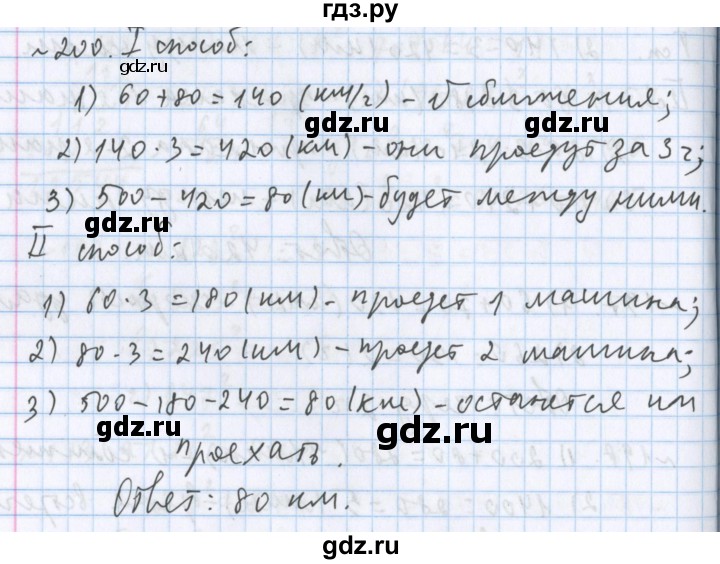 гдз.ру
№200. I способ:
gdz.ru
1) 60+80=140 (км/г) - V сближения;
gdz.ru
gdz.ru
2) 140·3=420(км)-они проедут за 3ч;
3) 500-420=80(км)-будет между ними.
gdz.ru
II способ:
gdz.ru
1) 60·3=180(км)-проедет 1 машина;
2) 80·3=240(км)-проедет 2 машина;
gdz.ru
3) 500-180-240=80(км)-останется им
gdz.ru
проехать.
Ответ: 80 км.
gdz.ru
gdz.ru